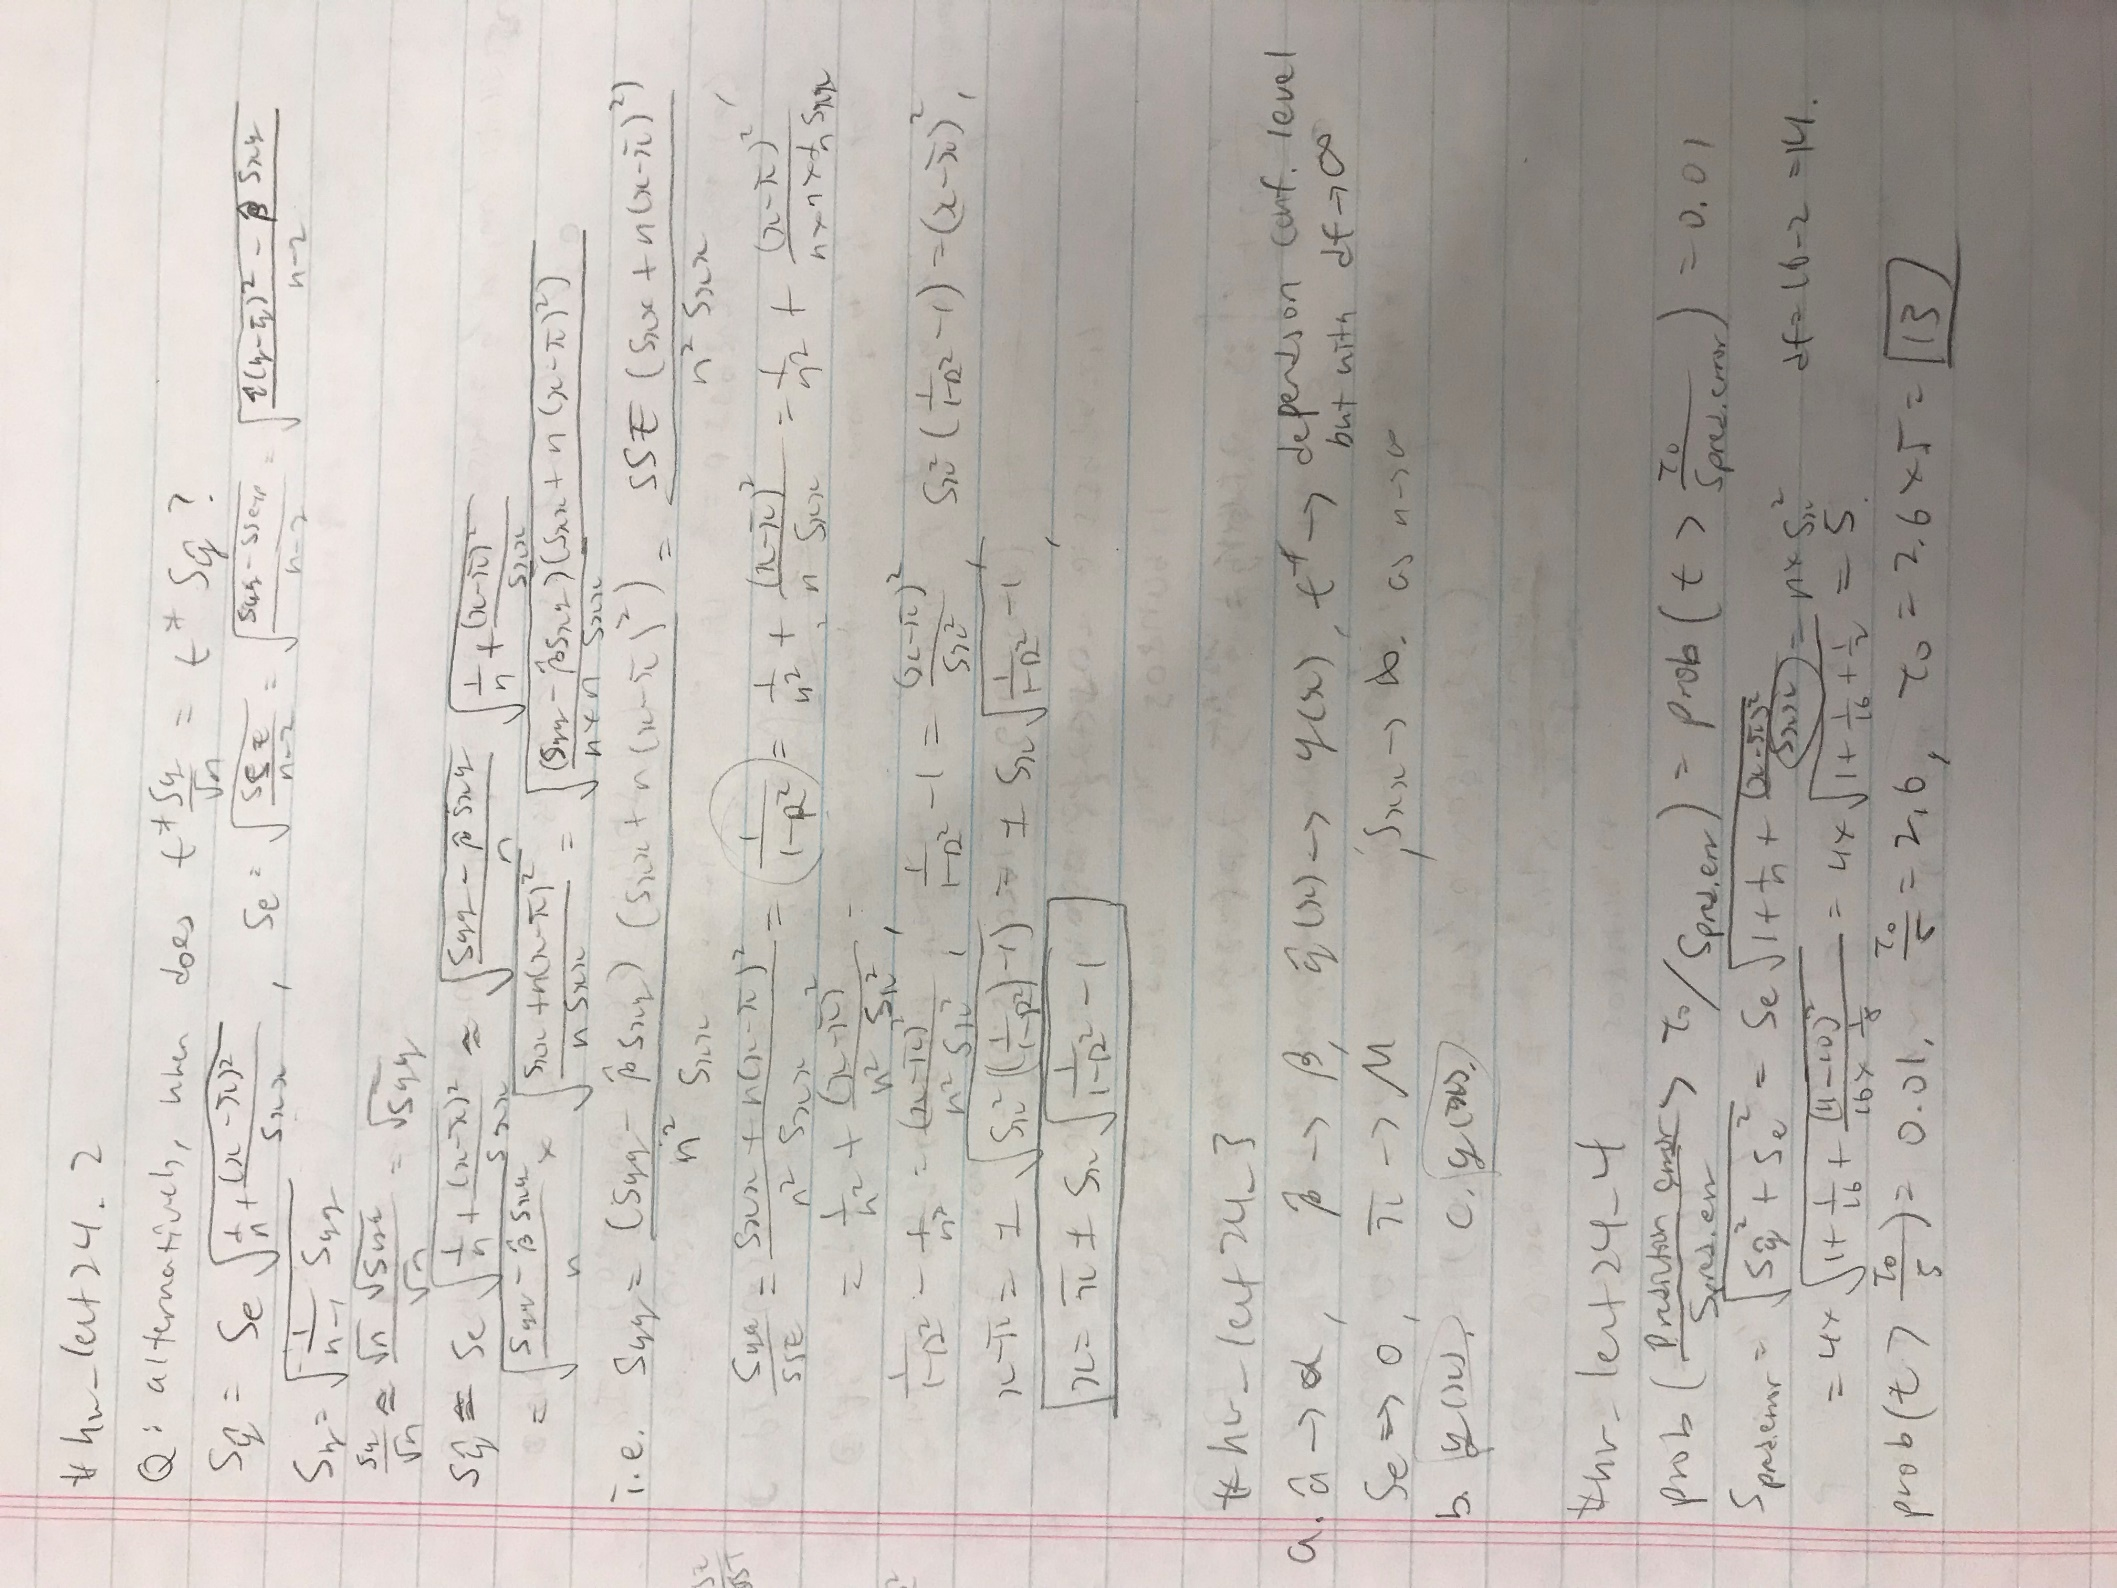 # hw_lect 24.2
Q: alternatively, when does t* Sy/√n = t* Sŷ ?
Sŷ = Se √(1/n + (x-x̄)²/Sxx) , Se = √(SSE/n-2) = √(Syy - SSexp/n-2) = √(Σ(y-ȳ)² - β̂ Sxy/n-2)
Sy = √(1/n-1 Syy)
Sy/√n ≈ √Syy/√n √n = √Syy
Sŷ ≈ Se √(1/n + (x-x̄)²/Sxx) ≈ √(Syy - β̂ Sxy/n) √(1/n + (x-x̄)²/Sxx)
= √(Syy - β̂ Sxy/n) × √(Sxx + n(x-x̄)²/n Sxx) = √((Syy - β̂ Sxy)(Sxx + n(x-x̄)²)/n×n Sxx)
i.e. Syy = (Syy - β̂ Sxy)(Sxx + n(x-x̄)²)/n² Sxx = SSE (Sxx + n(x-x̄)²)/n² Sxx
Syy/SSE = Sxx + n(x-x̄)²/n² Sxx = (1/1-R²) = 1/n² + (x-x̄)²/n Sxx = 1/n² + (x-x̄)²/n×n×1/n Sxx ,
= 1/n² + (x-x̄)²/n² Sx²
1/1-R² - 1/n² = (x-x̄)²/n² Sx² , 1/1-R² - 1 = (x-x̄)²/Sx² Sx² (1/1-R² - 1) = (x-x̄)² ,
x-x̄ = ± √(Sx² ((1/1-R²) -1)) = ± Sx √(1/1-R² - 1) ,
x = x̄ ± Sx √(1/1-R² - 1)
# hw_lect 24_3
a. α̂ → α , β̂ → β , ŷ(x) → y(x) , t* → depends on conf. level
but with df → ∞
Se → 0 , x̄ → μ , Sxx → ∞. as n→∞
b. y(x). c. y(x).
# hw_lect 24_4
prob ( Prediction error/Spred.err > τ0/Spred.err ) = prob ( t > τ0/Spred.error ) = 0.01
Spred.error = √(Sŷ² + Se²) = Se √(1 + 1/n + (x-x̄)²/Sxx) = n × Sx² df = 16-2 = 14.
= 4× √(1 + 1/16 + (11-10)²/16 × 1/8) = 4× √(1 + 1/16 + 1/2) = 5.
prob ( t > τ0/5 ) = 0.01. τ0/5 = 2.6 , τ0 = 2.6 × 5 = 13